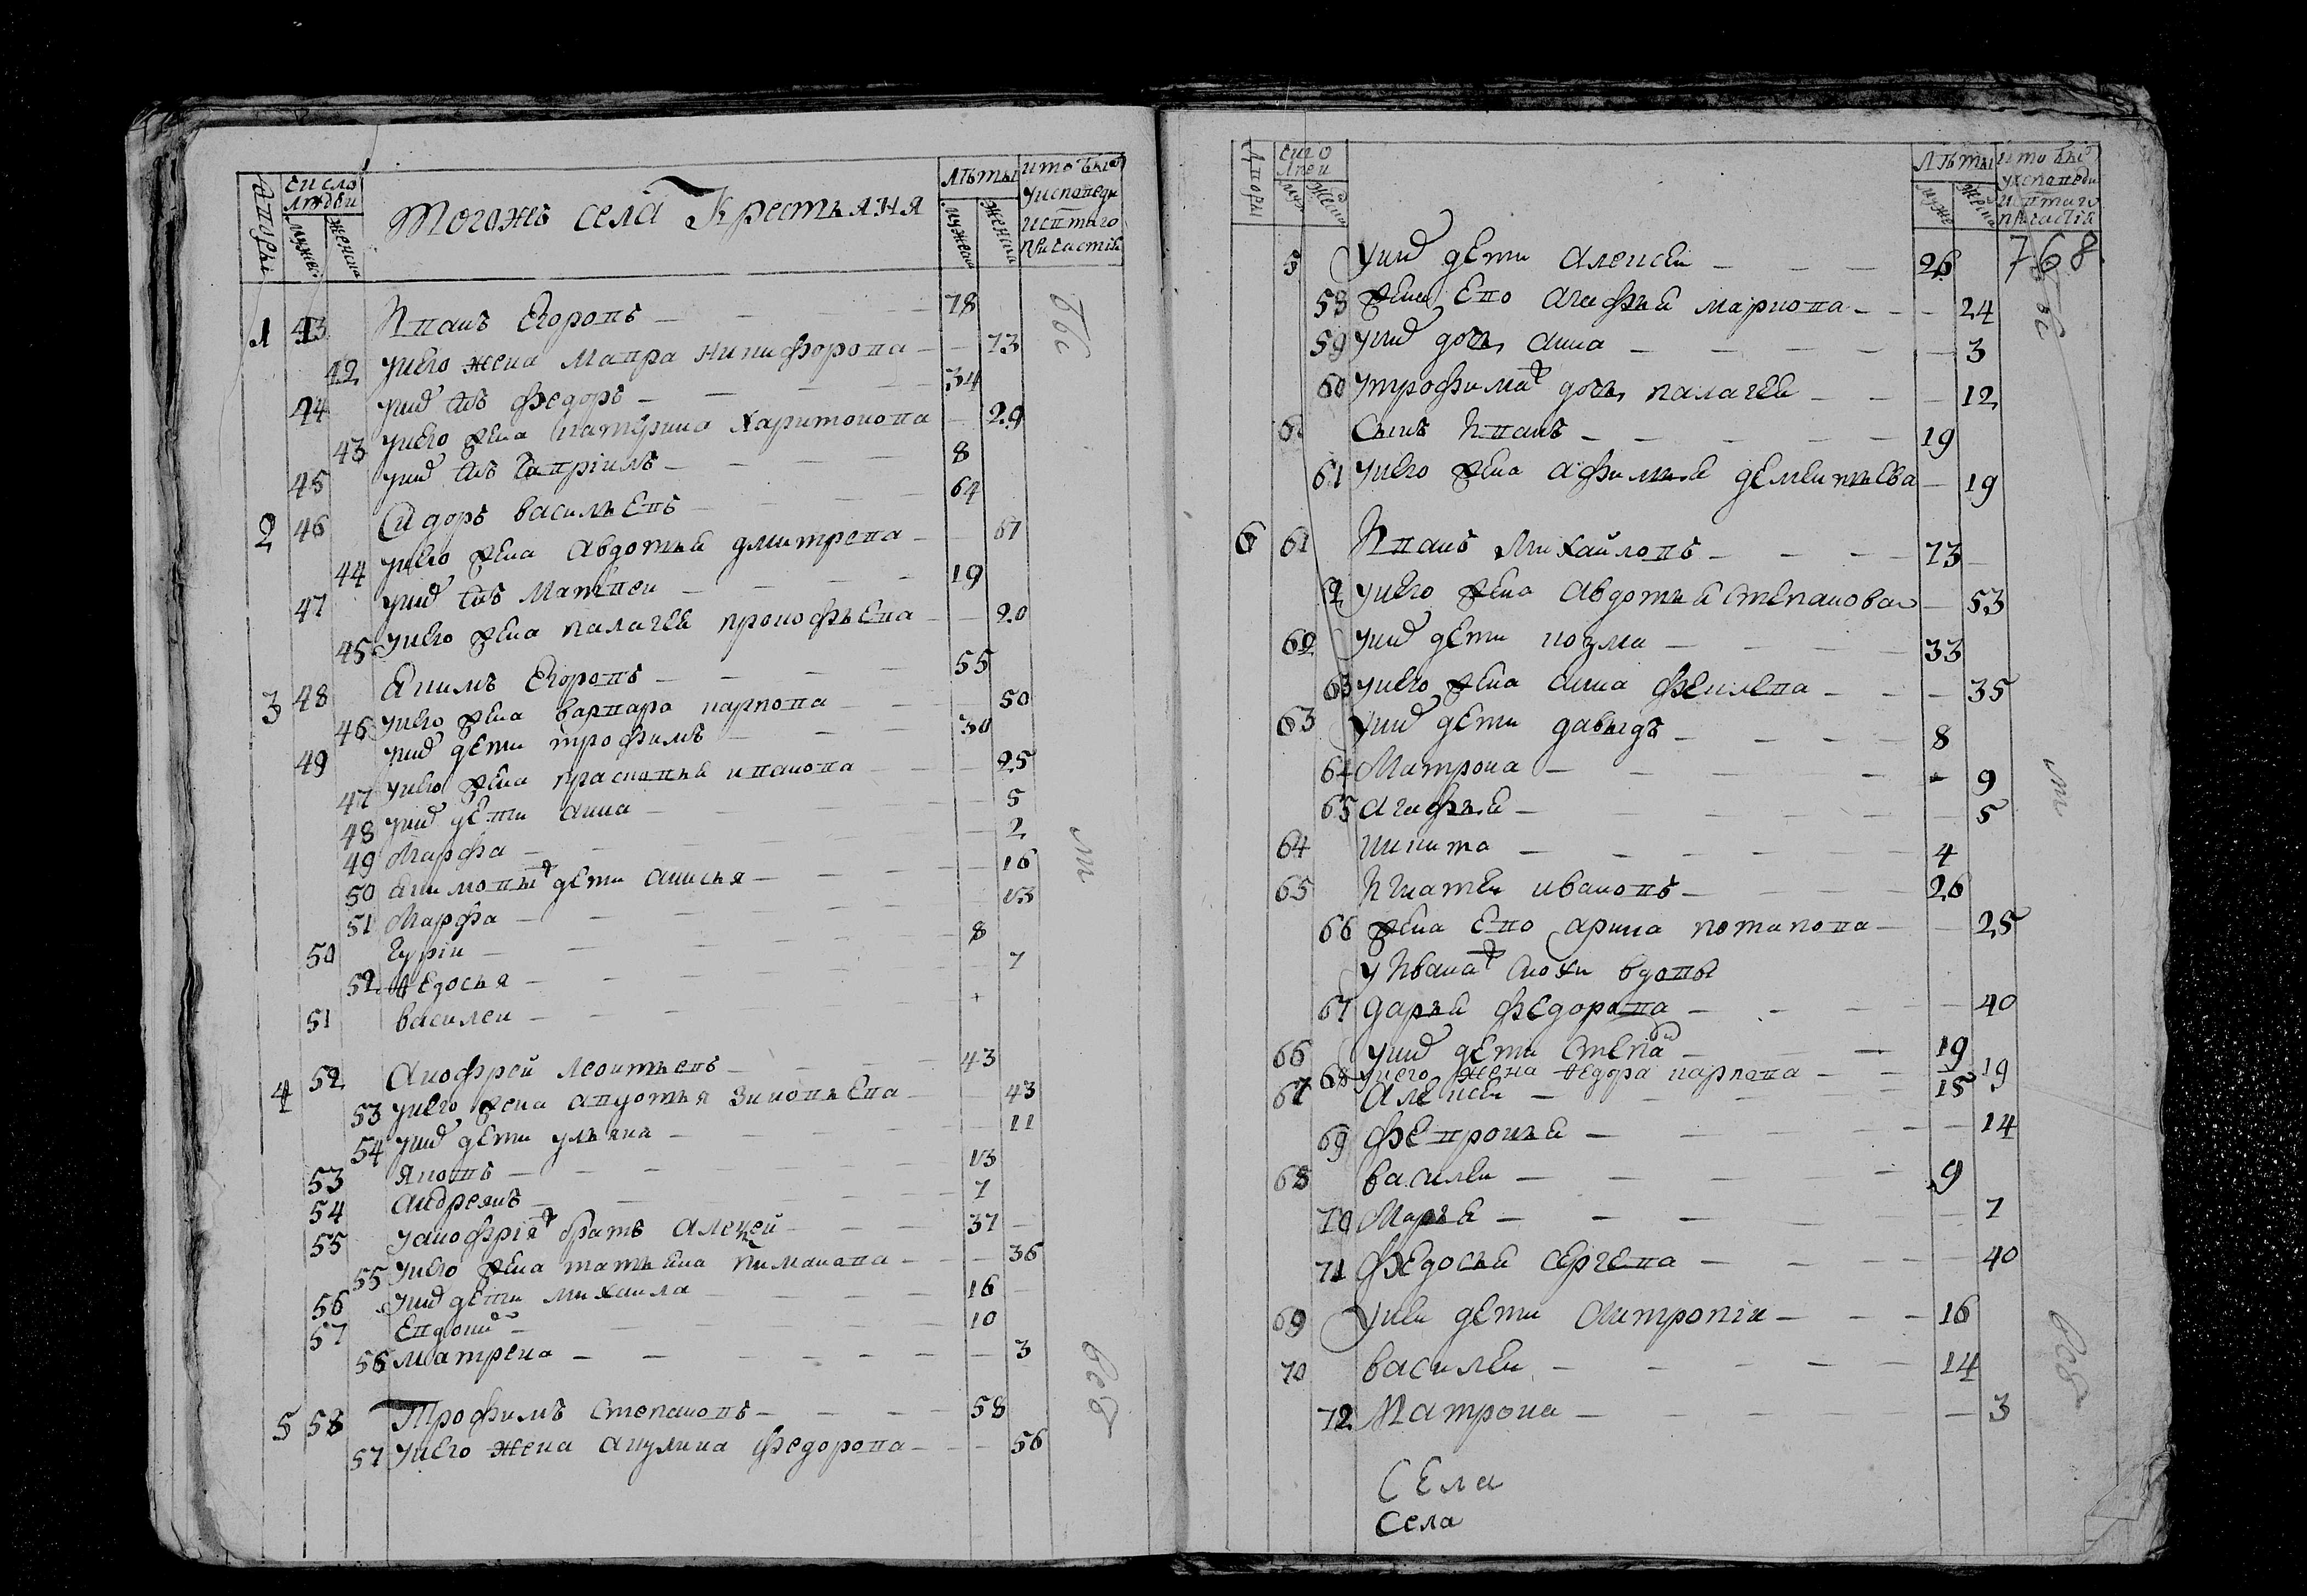 Дворы
число людей
мужес
женска
Тогожъ села Крестьяня
лѣты
мужеска
женска
кто былъ
у исповеди
и с̃таго
причастія
1 43 Иванъ Егоровъ 78
42 У него жена Мавра Никифорова 73
44 У нихъ с̃нъ Федоръ 34
43 У него жена Катерина Харитонова 29
45 У нихъ с̃нъ Гавріилъ 8
2 46 Сидоръ Васильевъ 64
44 У него жена Авдотья Дмитрева 61
47 У нихъ с̃нъ Матвеи 19
45 У него жена Палагея Прокофьева 20
3 48 Якимъ Егоровъ 55
46 У него жена Варвара Карпова 50
49 У нихъ дети Трофимъ 30
47 У него жена Прасковья Иванова 25
48 У нихъ дети Анна 5
49 Марфа 2
50 Якимовы дети Анисья 16
51 Марфа 13
50 Гурiи 8
52 Ѳедосья 7
51 Василеи +
4 52 Анофрей Леонтьевъ 43
53 У него жена Авдотья Зиновьева 43
54 У нихъ дети Ульяна 11
53 Яковъ 13
54 Андреянъ 7
55 У Анофрія братъ Алеѯей 37
55 У него жена Татьяна Пиманова 36
56 У нихъ дети Михаила 16
57 Евдоким 10
56 Матрена 3
5 58 Трофимъ Степановъ 58
57 У него жена Акулина Федорова 56
бы
ли
всѣ
Дворы
число
людеи
муж
женска
лѣты
мужес
женска
кто былъ
у исповеди
и с̃таго
причастія
768
5 У нихъ дети Алексеи 26
58 Жена ево Агафья Маркова 24
59 У нихъ дочь Анна 3
60 У Трофима дочь Палагея 12
Сынъ Иванъ 19
61 У него жена Афимья Дементьева 19
6 61 Иванъ Михайловъ 73
У него жена Авдотья Степанова 53
62 У нихъ дети Козма 33
63 У него жена Анна Фенлева 35
63 У нихъ дети Давыдъ 8
64 Матрона 9
65 Агафья 5
64 Никита 4
65 Игнатеи Ивановъ 26
66 Жена ево Арина Потапова 25
У Ивана снохи вдовы
67 Дарья Федорова 40
66 У нихъ дети Степа 19
68 У него жена Ѳедора Карпова 19
67 Алексеи 15
69 Февронья 14
68 Василеи 9
70 Марья 7
71 Федосья Сергева 40
69 У неи дети Митрофаи 16
70 Василеи 14
72 Матрона 3
Села
Села
бы
ли
всѣ